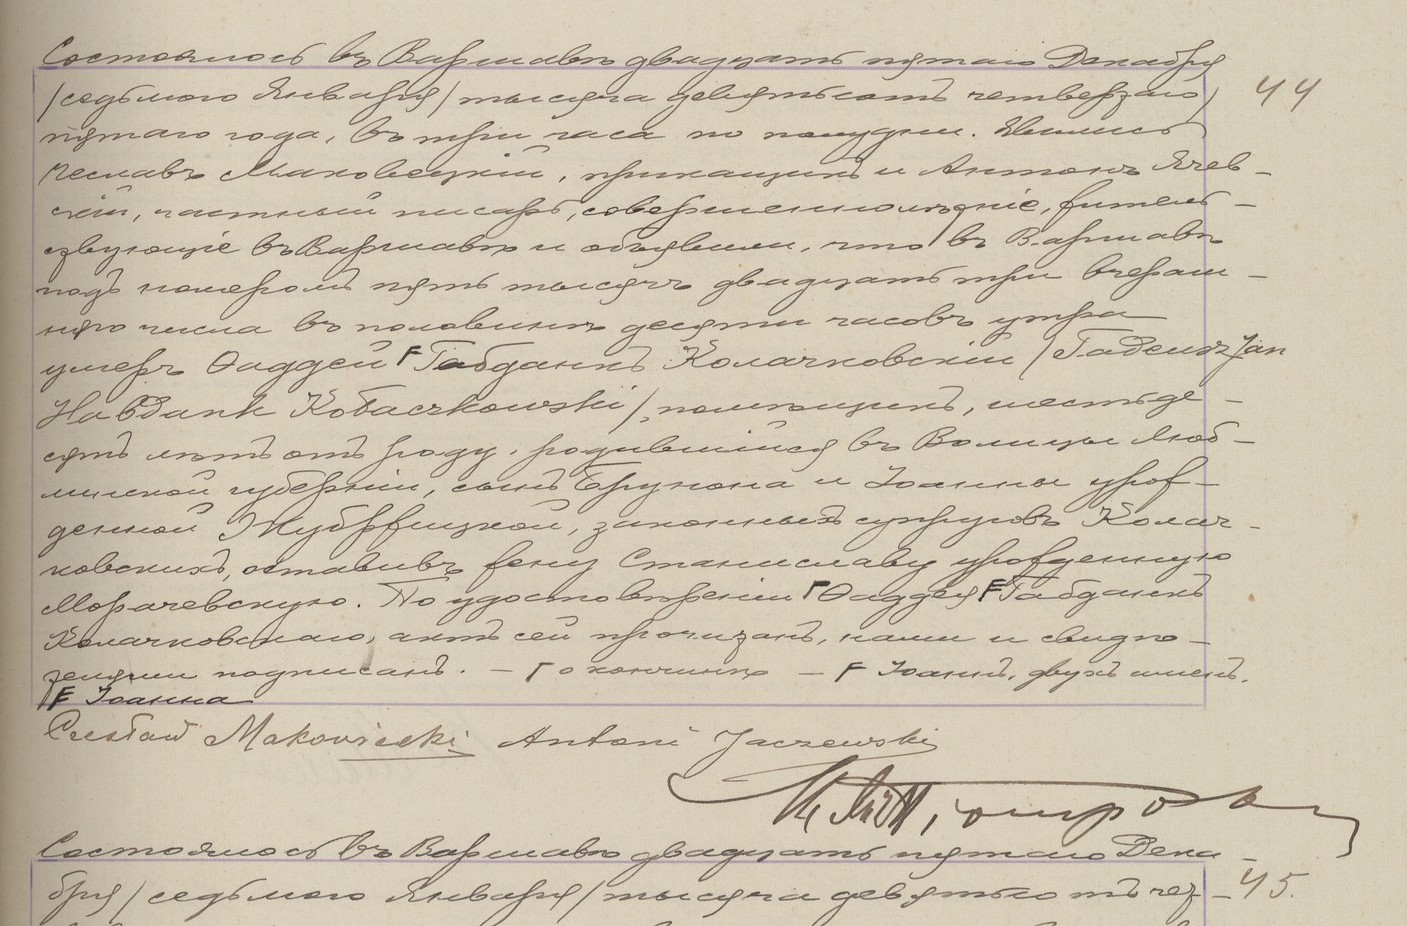 Состоялось въ Варшавѣ двадцать пятаго Декабря
/седьмого Января/ тысяча девятьсотъ четвертаго/
44
пятаго года, въ три часа по полудни. Явились
Чеславъ Маковецкій, прикащикъ и Антонъ Ячев-
скій, частный писарь, совершеннолѣтніе, житель-
ствующіе въ Варшавѣ и объявили, что въ Варшавѣ
подъ номеромъ пять тысячъ двадцать три вчераш-
няго числа въ половинѣ десяти часовъ утра
умеръ Фаддей Г Габданкъ Колачковскій /Tadeusz Jan
Habdank Kołaczkowski/, помѣщикъ, шестьде-
сятъ лѣтъ отъ роду, родившійся въ Волицы Люб-
линской губерніи, сынъ Брунона и Іоанны урож-
денной законныхъ супруговъ Колач-
ковскихъ, оставивъ жену Станиславу урожденную
Морачевскую. По удостовѣреніи Г Фаддея F Габданкъ
Колачковскаго, актъ сей прочитанъ, нами и свидѣ-
телями подписанъ. — Г о кончинѣ — F Іоаннъ, двухъ именъ.
F Іоанна
Czesław Makowiecki Antoni Jaczewski
Состоялось въ Варшавѣ двадцать пятаго Дека-
бря /седьмого Января/ тысяча девятьсотъ чет-
45.